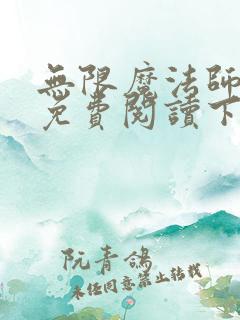 無限魔法師
免費閱讀下
阮青鴿
未經同意禁止轉載